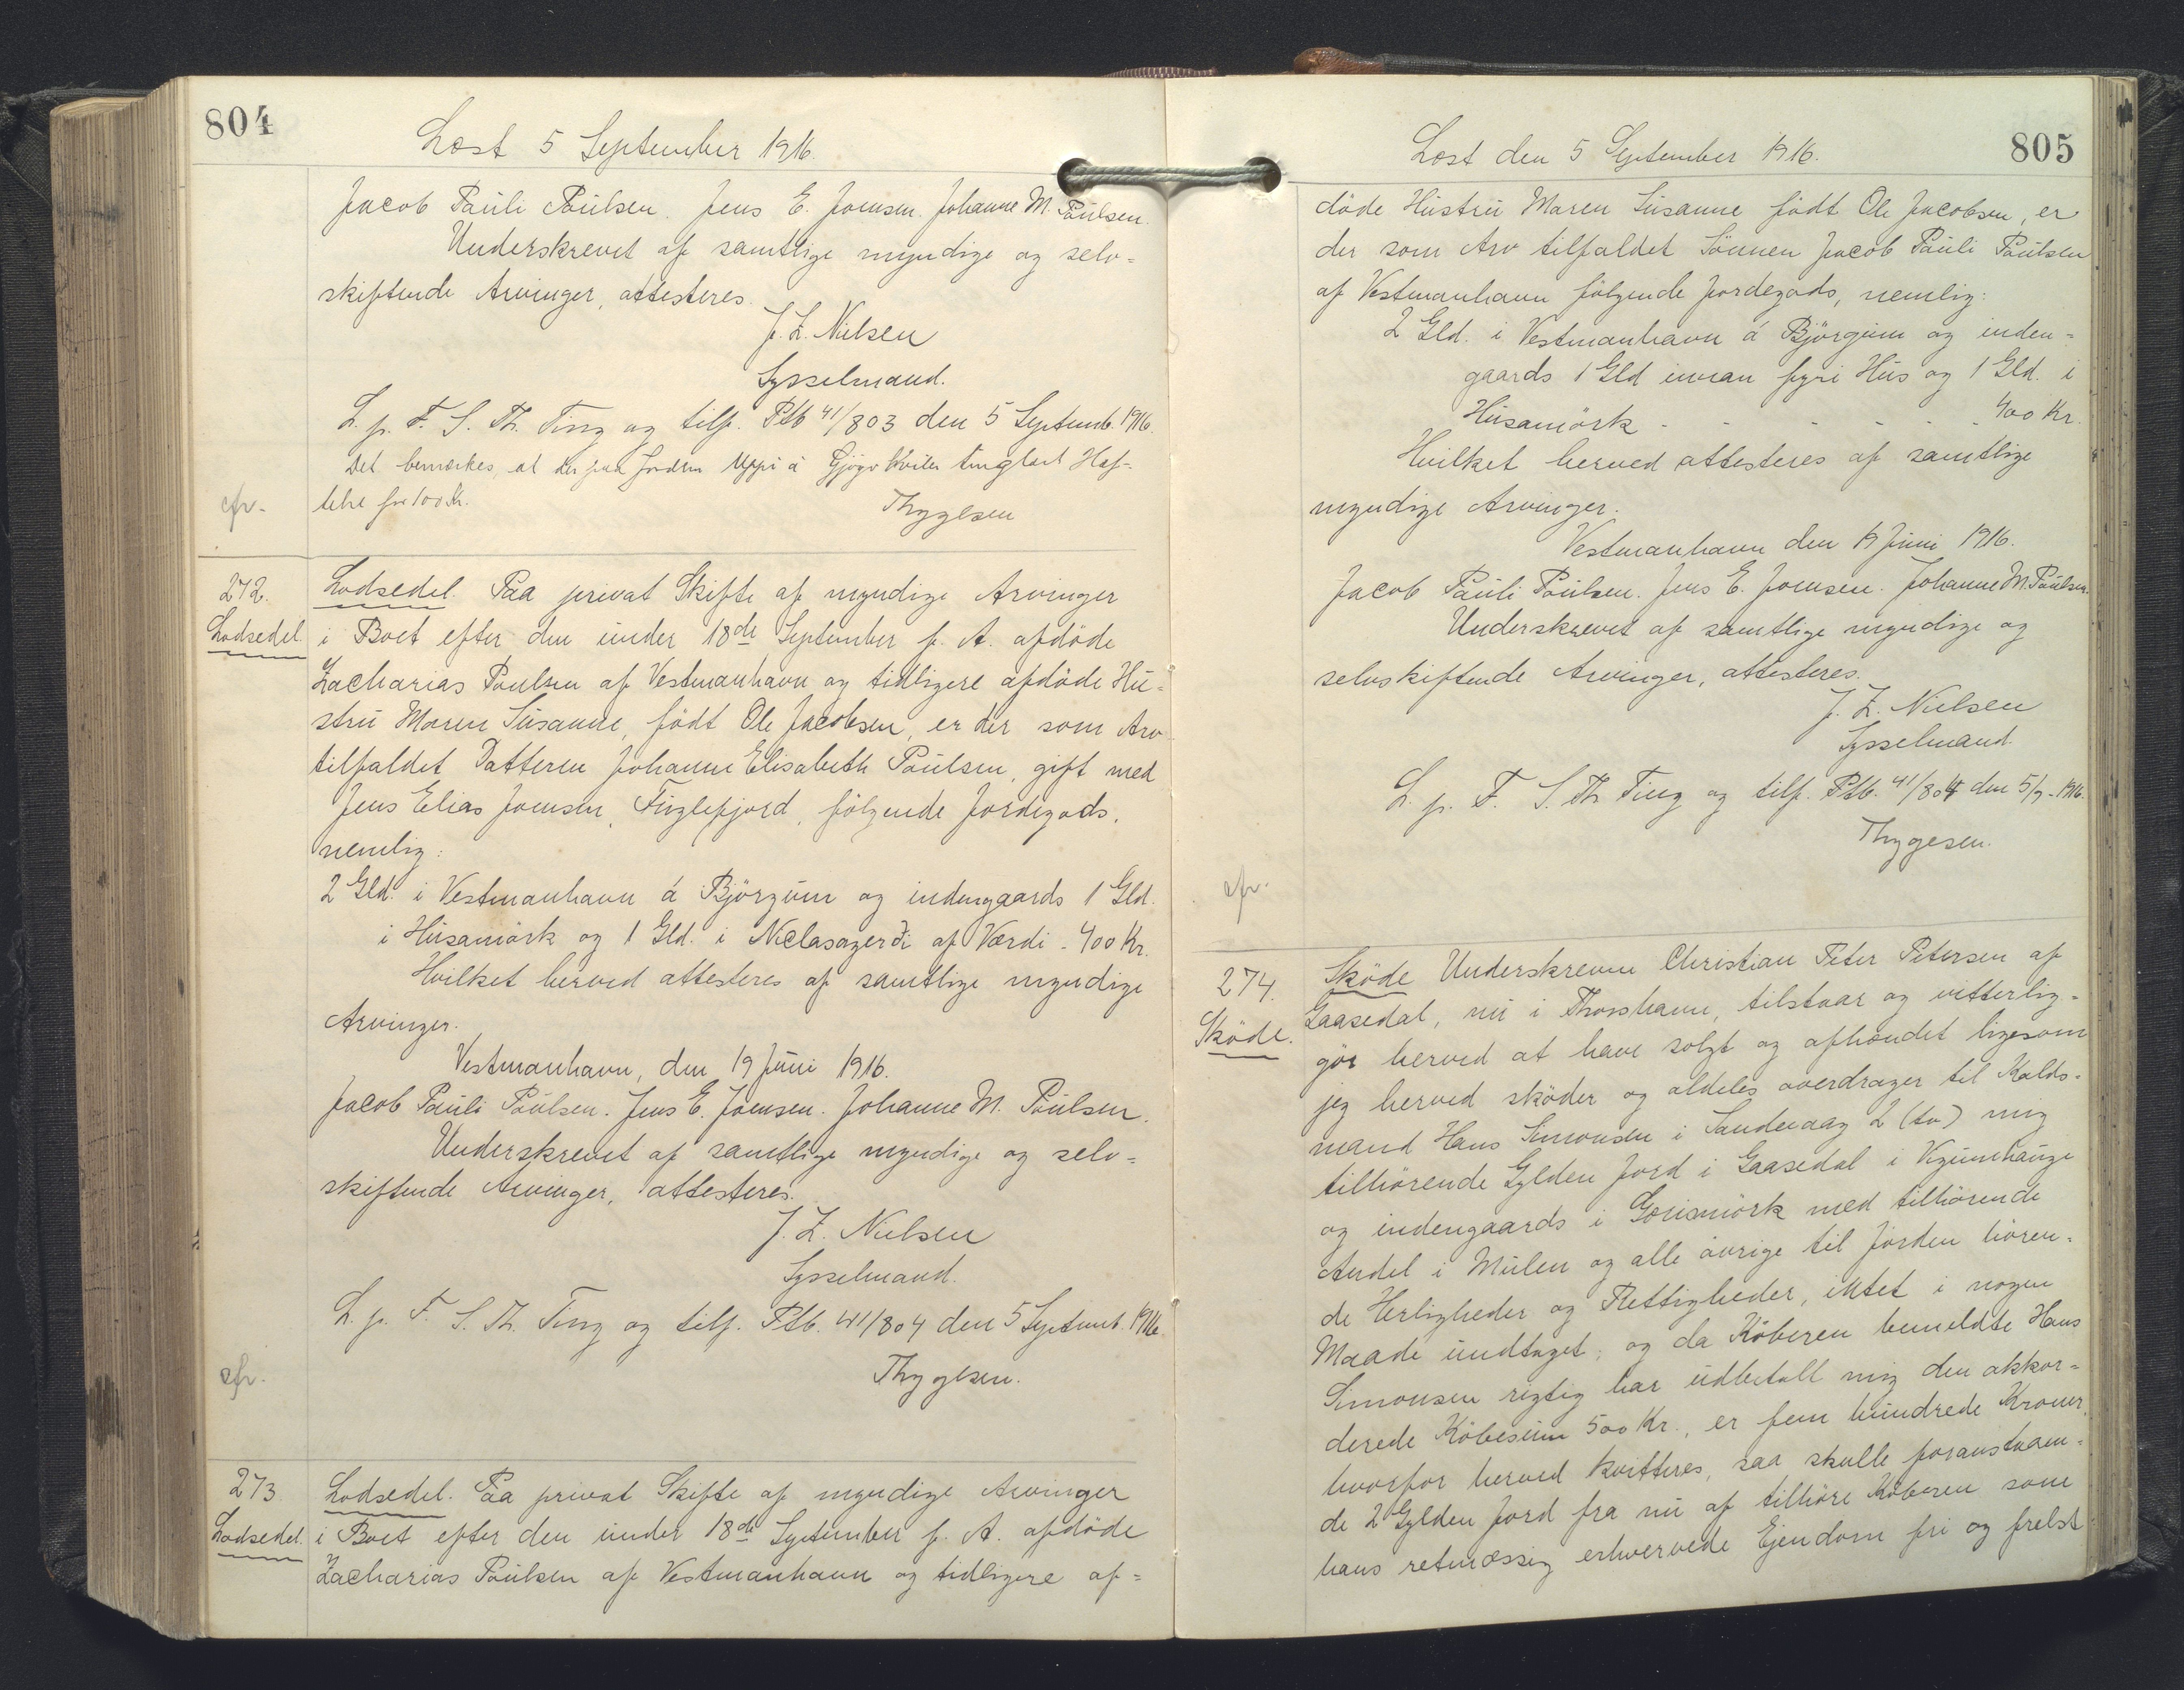 804
Læst 5 September 1916.
Jacob Pauli Poulsen. Jens E. Joensen. Johanne M. Poulsen.
Underskrevet af samtlige myndige og selv=
skiftende Arvinger, attesteres.
J. Z. Nielsen
Sysselmand.
L. p. F. S. Th. Ting og tilf. Ptb 41/803 den 5 Septemb. 1916.
Det bemærkes, at der paa Jorden Uppi á Gjógv hviler tinglæst Hæf-
telse for 100 Kr.
Thygesen
cfr.
272.
Lodsedel.
Lodsedel. Paa privat Skifte af myndige Arvinger
i Boet efter den under 18de September f. A. afdöde
Zacharias Poulsen af Vestmanhavn og tidligere afdöde Hu=
stru Maren Susanne, födt Ole Jacobsen, er der som Arv
tilfaldet Datteren Johanne Elisabeth Poulsen, gift med
Jens Elias Joensen, Fuglefjord, fölgende Jordegods,
nemlig:
2 Gld. i Vestmanhavn á Björgum og indengaards 1 Gld.
i Húsamörk og 1 Gld. i Niclasagerði af Værdi - 400 Kr.
Hvilket herved attesteres af samtlige myndige
Arvinger.
Vestmanhavn, den 19 Juni 1916.
Jacob Pauli Poulsen. Jens E. Joensen. Johanne M. Poulsen.
Underskrevet af samtlige myndige og selv=
skiftende Arvinger, attesteres.
J. Z. Nielsen
Sysselmand.
L. p. F. S. Th. Ting og tilf. Ptb. 41/804 den 5 Septemb. 1916
Thygesen.
cfr.
273
Lodsedel.
Lodsedel. Paa privat Skifte af myndige Arvinger
i Boet efter den under 18de September f. A. afdöde
Zacharias Poulsen af Vestmanhavn og tidligere af=
805
Læst den 5 September 1916.
döde Hustru Maren Susanne födt Ole Jacobsen, er
der som Arv tilfaldet Sönnen Jacob Pauli Poulsen
af Vestmanhavn fölgende Jordegods, nemlig:
2 Gld. i Vestmanhavn á Björgum og inden=
gaards 1 Gld innan fyri Hús og 1 Gld. i
Húsamörk - - - - - 400 Kr.
Hvilket herved attesteres af samtlige
myndige Arvinger.
Vestmanhavn den 19 Juni 1916.
Jacob Pauli Poulsen. Jens E. Joensen. Johanne M. Poulsen.
Underskrevet af samtlige myndige og
selvskiftende Arvinger, attesteres.
J. Z. Nielsen
Sysselmand.
L. p. F. S. Th. Ting og tilf. Ptb. 41/804 den 5/9-1916.
Thygesen.
cfr.
274.
Sköde.
Sköde Underskrevne Christian Peter Petersen af
Gaasedal, nu i Thorshavn, tilstaar og vitterlig=
gör herved at have solgt og afhændet ligesom
jeg herved sköder og aldeles overdrager til Kalds-
mand Hans Simonsen i Sandevaag 2 (to) mig
tilhörende Gylden Jord i Gaasedal i
og indengaards i med tilhörende
Andel i Mulen og alle övrige til Jorden hören=
de Herligheder og Rettigheder, intet i nogen
Maade undtaget; og da Köberen bemeldte Hans
Simonsen rigtig har udbetalt mig den akkor=
derede Köbesum 500 Kr., er fem hundrede Kroner,
hvorfor herved kvitteres, saa skulle foranstaaen=
de 2 Gylden Jord fra nu af tilhöre Köberen som
hans retmæssig erhvervede Ejendom fri og frelst